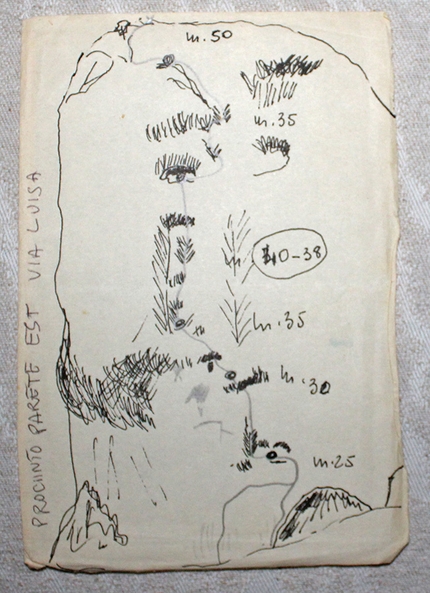 m.50
m.35
40-38
m.35
m.30
m.25
PROCINTO PARETE EST VIA LUISA